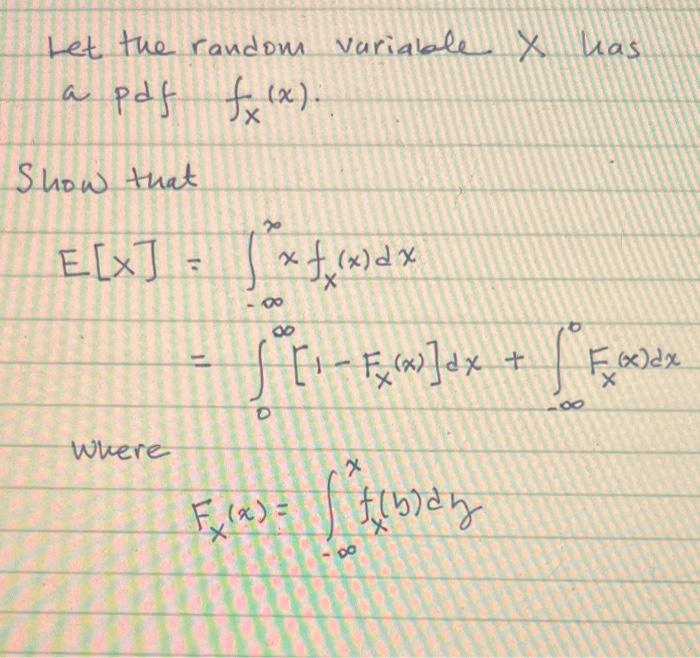 Let the random variable X has
a pdf f_X(x).
Show that
E[X] = ∫_{-∞}^{∞} x f_X(x) dx
= ∫_0^∞ [1 - F_X(x)] dx + ∫_{-∞}^0 F_X(x) dx
Where
F_X(x) = ∫_{-∞}^x f_X(y) dy